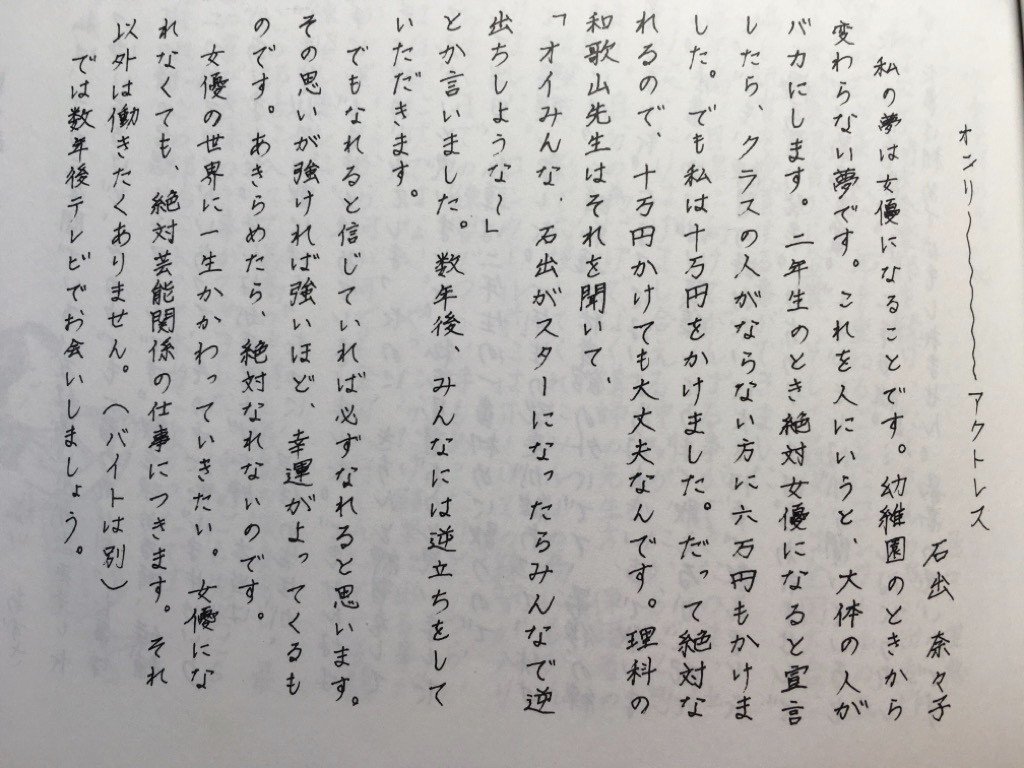 オンリ〜〜〜〜〜アクトレス
石出 奈々子
私の夢は女優になることです。幼維園のときから
変わらない夢です。これを人にいうと、大体の人が
バカにします。二年生のとき絶対女優になると宣言
したら、クラスの人がならない方に六万円もかけま
した。でも私は十万円をかけました。だって絶対な
れるので、十万円かけても大丈夫なんです。理科の
和歌山先生はそれを聞いて、
「オイみんな、石出がスターになったらみんなで逆
出ちしような〜」
とか言いました。数年後、みんなには逆立ちをして
いただきます。
でもなれると信じていれば必ずなれると思います。
その思いが強ければ強いほど、幸運がよってくるも
のです。あきらめたら、絶対なれないのです。
女優の世界に一生かかわっていきたい。女優にな
れなくても、絶対芸能関係の仕事につきます。それ
以外は働きたくありません。（バイトは別）
では数年後テレビでお会いしましょう。